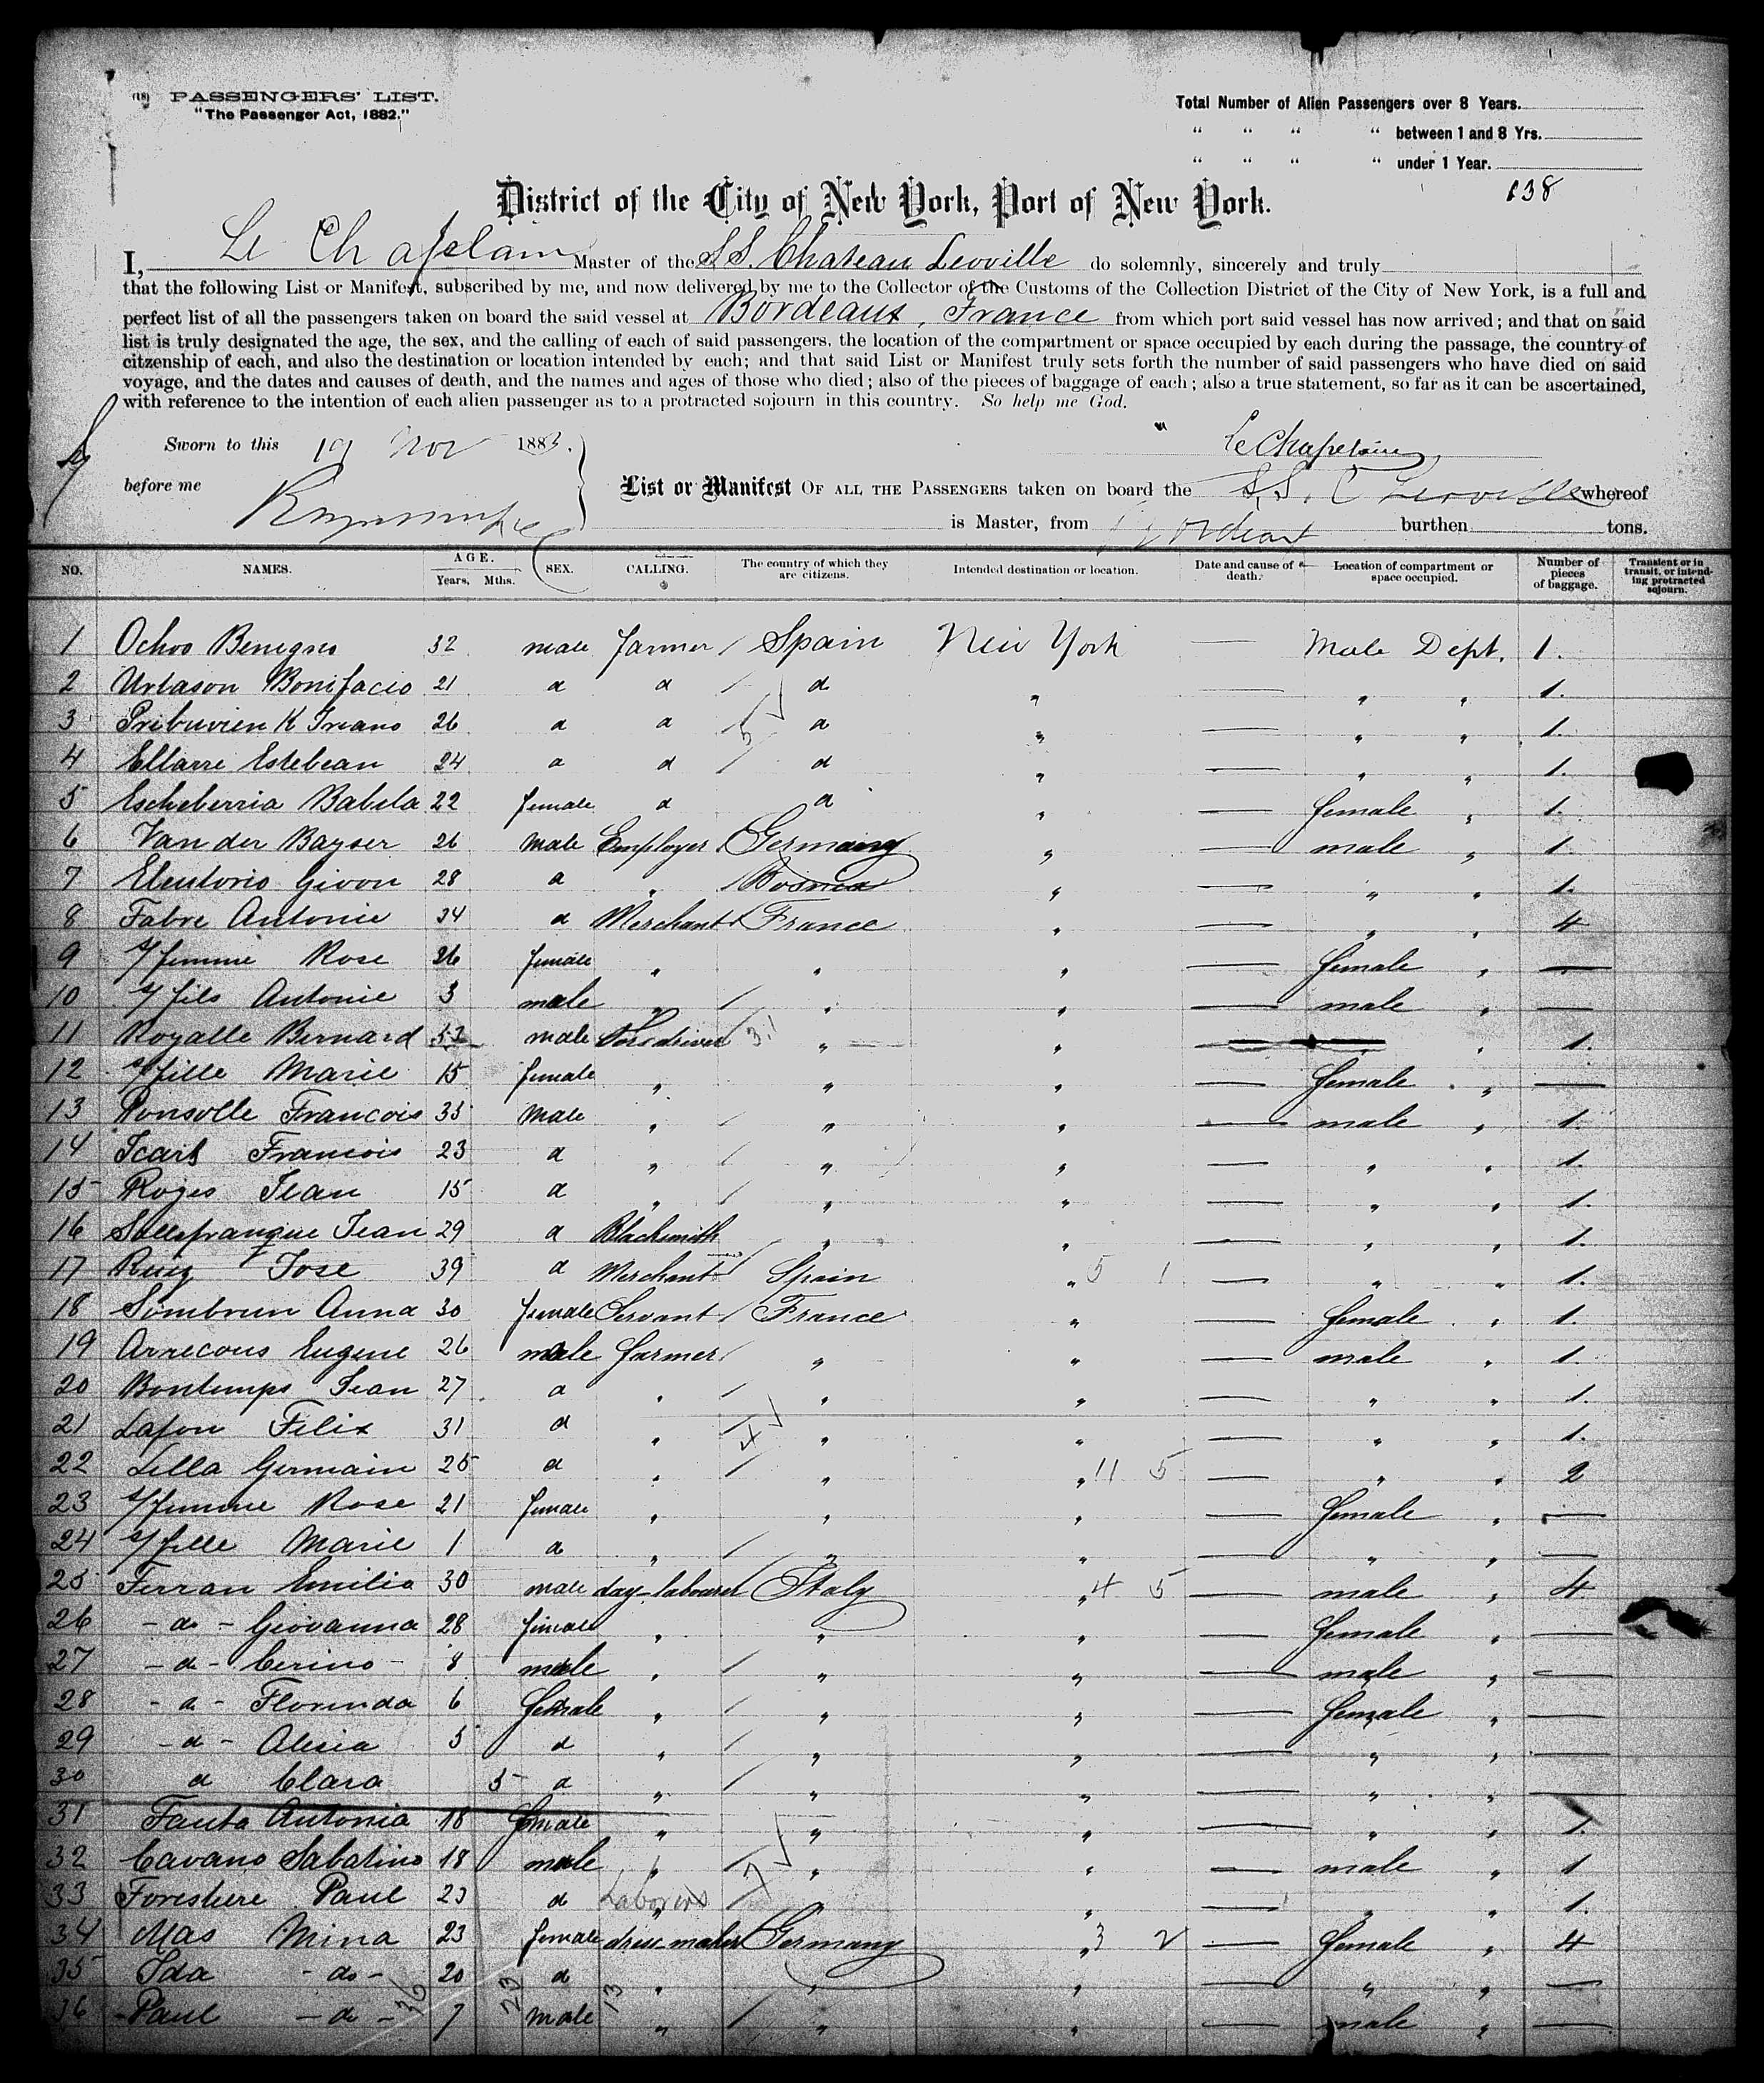 (18) PASSENGERS' LIST.
"The Passenger Act, 1882."
Total Number of Alien Passengers over 8 Years.
" " " " between 1 and 8 Yrs.
" " " " under 1 Year.
138
District of the City of New York, Port of New York.
I, Le Chapelain Master of the S.S. Chateau Leoville do solemnly, sincerely and truly
that the following List or Manifest, subscribed by me, and now delivered by me to the Collector of the Customs of the Collection District of the City of New York, is a full and
perfect list of all the passengers taken on board the said vessel at Bordeaux, France from which port said vessel has now arrived; and that on said
list is truly designated the age, the sex, and the calling of each of said passengers, the location of the compartment or space occupied by each during the passage, the country of
citzenship of each, and also the destination or location intended by each; and that said List or Manifest truly sets forth the number of said passengers who have died on said
voyage, and the dates and causes of death, and the names and ages of those who died; also of the pieces of baggage of each; also a true statement, so far as it can be ascertained,
with reference to the intention of each alien passenger as to a protracted sojourn in this country. So help me God.
Sworn to this 19 Nov 1883.
Le Chapelain
before me
List or Manifest OF ALL THE PASSENGERS taken on board the S.S. C Leoville whereof
is Master, from Bordeaux burthen tons.
NO. NAMES. AGE. Years, Mths. SEX. CALLING. The country of which they are citizens. Intended destination or location. Date and cause of death. Location of compartment or space occupied. Number of pieces of baggage. Transient or in transit, or intending protracted sojourn.
1 Ochoo Benigno 32 male farmer Spain New York — Male Dept. 1.
2 Urtason Bonifacio 21 d d d " — " " 1.
3 Iriano 26 d d d " — " " 1.
4 Ellarre Estebean 24 d d d " — " " 1.
5 Escheberria Babela 22 female d d " — female " 1.
6 Van der Bayser 26 male Employer Germany " — male " 1.
7 Eleutorio Givon 28 d " Bosnia " — " " 1.
8 Fabre Antonie 34 d Merchant France " — " " 4
9 s/femme Rose 26 female " " " — female " —
10 s/fils Antonie 3 male " " " — male " —
11 Royalle Bernard 53 male " " — " 1.
12 s/fille Marie 15 female " " " — female " —
13 Ponsolle Francois 35 male " " " — male " 1.
14 Icart Francois 23 d " " " — " " 1.
15 Roges Jean 15 d " " " — " " 1.
16 Sallefranque Jean 29 d Blacksmith " " — " " 1.
17 Ruiz Jose 39 d Merchant Spain " 5 1 — " " 1.
18 Sombrun Anna 30 female Servant France " — female " 1.
19 Arrecous Eugene 26 male farmer " " — male " 1.
20 Bontemps Jean 27 d " " " — " " 1.
21 Lafon Felix 31 d " " " — " " 1.
22 Lella Germain 25 d " " " 11 5 — " " 2
23 s/femme Rose 21 female " " " — female " —
24 s/fille Marie 1 d " " " — " " —
25 Ferran Emilio 30 male day labourer Italy " 4 5 — male " 4
26 - do - Giovanna 28 female " " " — female " —
27 - d - Cerino 8 male " " " — male " —
28 - d - Florinda 6 female " " " — female " —
29 - d - Alesia 5 d " " " — " " —
30 d Clara 5 d " " " — " " —
31 Fanta Antonia 18 female " " " — " " 1.
32 Cavano Sabatino 18 male " " " — male " 1
33 Forestiere Paul 23 d Laborers " " — " " 1.
34 Mas Mina 23 female dress maker Germany " 3 2 — female " 4
35 Ida - do - 20 d " " " — " " —
36 Paul - do - 7 male " " " — male " —
36 23 13